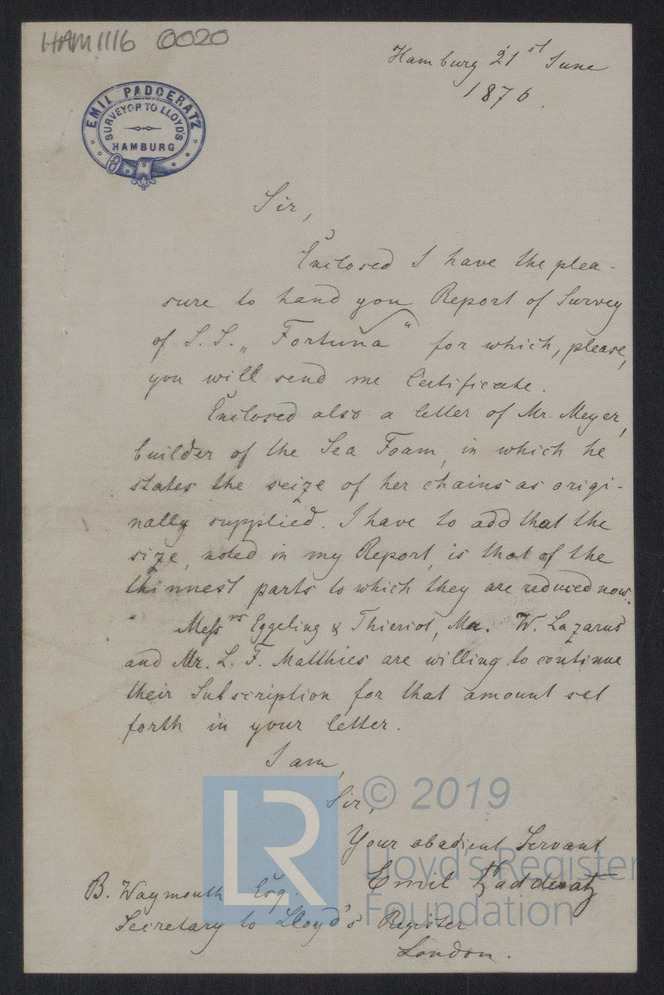 HAM1116 0020
Hamburg 21st June
1876.
EMIL PADDERATZ
SURVEYOR TO LLOYDS
HAMBURG
Sir,
Enclosed I have the plea-
sure to hand you Report of Survey
of S.S. „Fortuna" for which, please,
you will send me Certificate.
Enclosed also a letter of Mr. Meyer,
builder of the Sea Foam, in which he
states the seize of her chains as origi-
nally supplied. I have to add that the
size, noted in my Report, is that of the
thinnest parts to which they are reduced now.
Messrs Eggeling & Thieriot, Mr. W. Lazarus
and Mr. L. F. Matthies are willing to continue
their Subscription for that amount set
forth in your letter.
I am,
Sir,
Your obedient Servant
Emil Padderatz
B. Waymouth Esq.
Secretary to Lloyd's Register
London.
LR © 2019
Lloyd's Register
Foundation